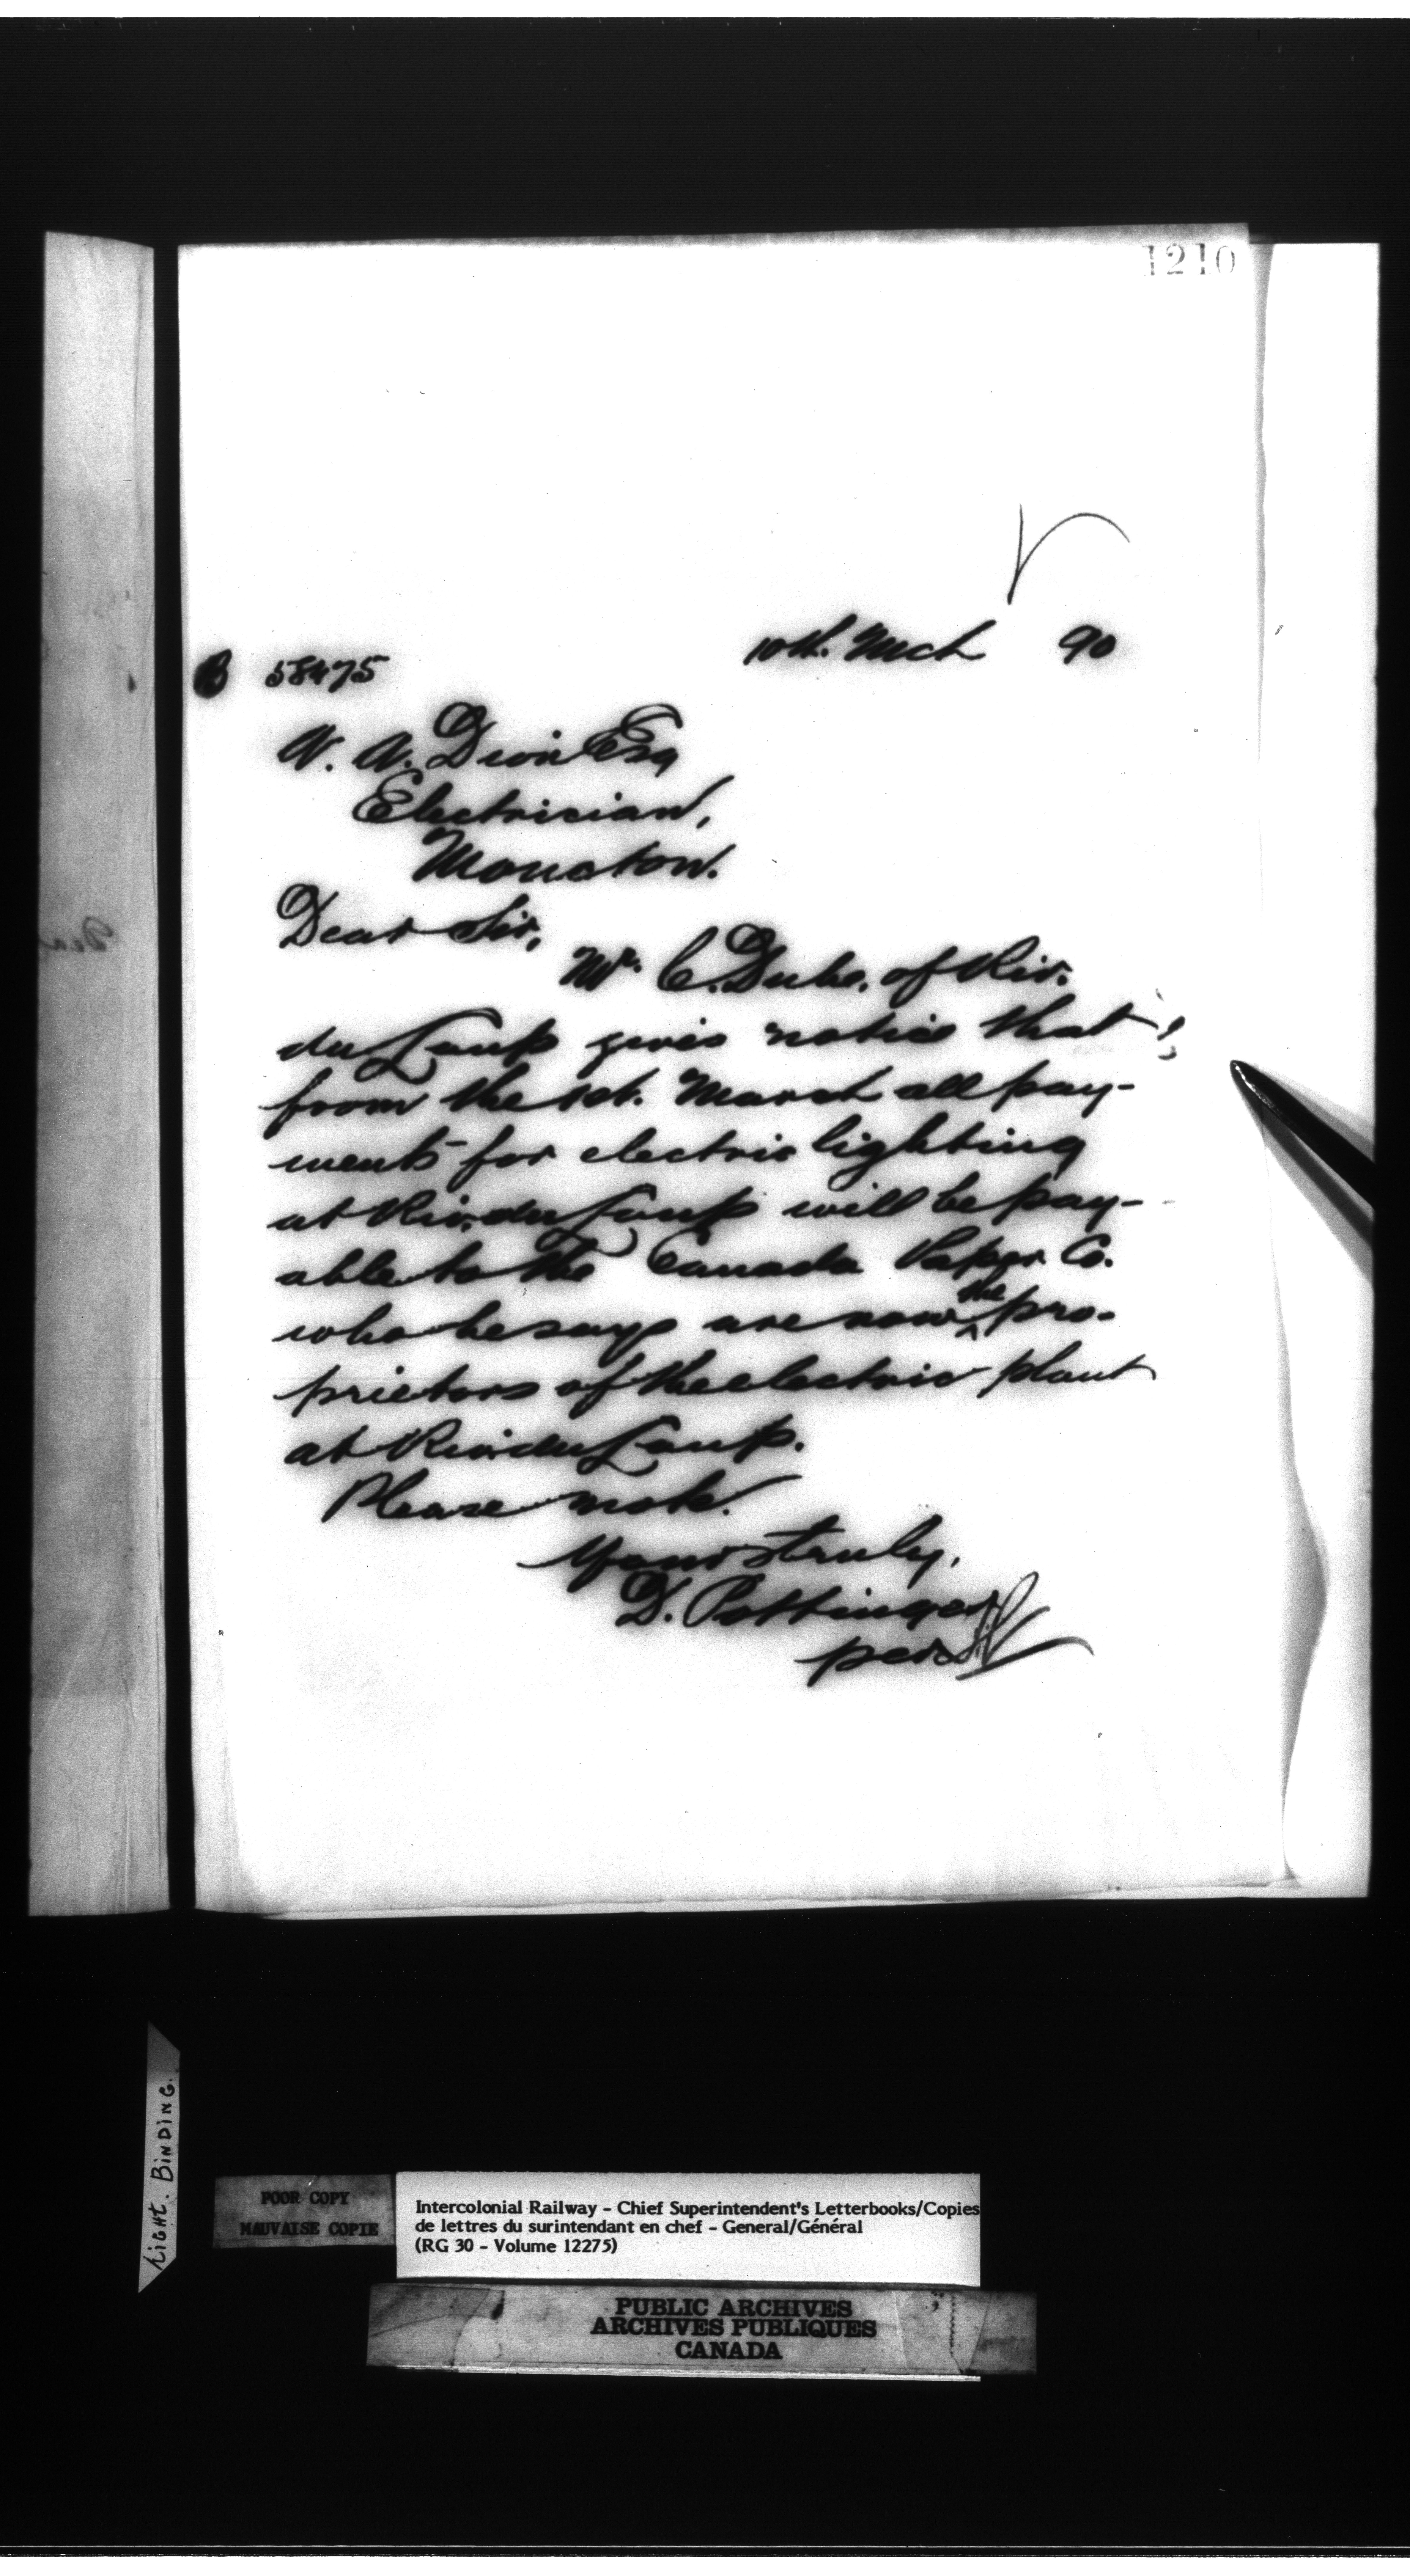 1210
10th. Mch 90
B 58475
Esq
Electrician,
Moncton.
Dear Sir,
Mr. C. Duke. of Riv.
du Loup gives notice that
from the 1st. March all pay-
ments for electric lighting
at Riv. du Loup will be pay-
able to the Canada Paper Co.
who he says are now the pro-
prietors of the electric plant
at Riv. du Loup.
Please note.
Yours truly,
D. Pottinger
per
Tight. Binding.
POOR COPY
MAUVAISE COPIE
Intercolonial Railway - Chief Superintendent's Letterbooks/Copies
de lettres du surintendant en chef - General/Général
(RG 30 - Volume 12275)
PUBLIC ARCHIVES
ARCHIVES PUBLIQUES
CANADA